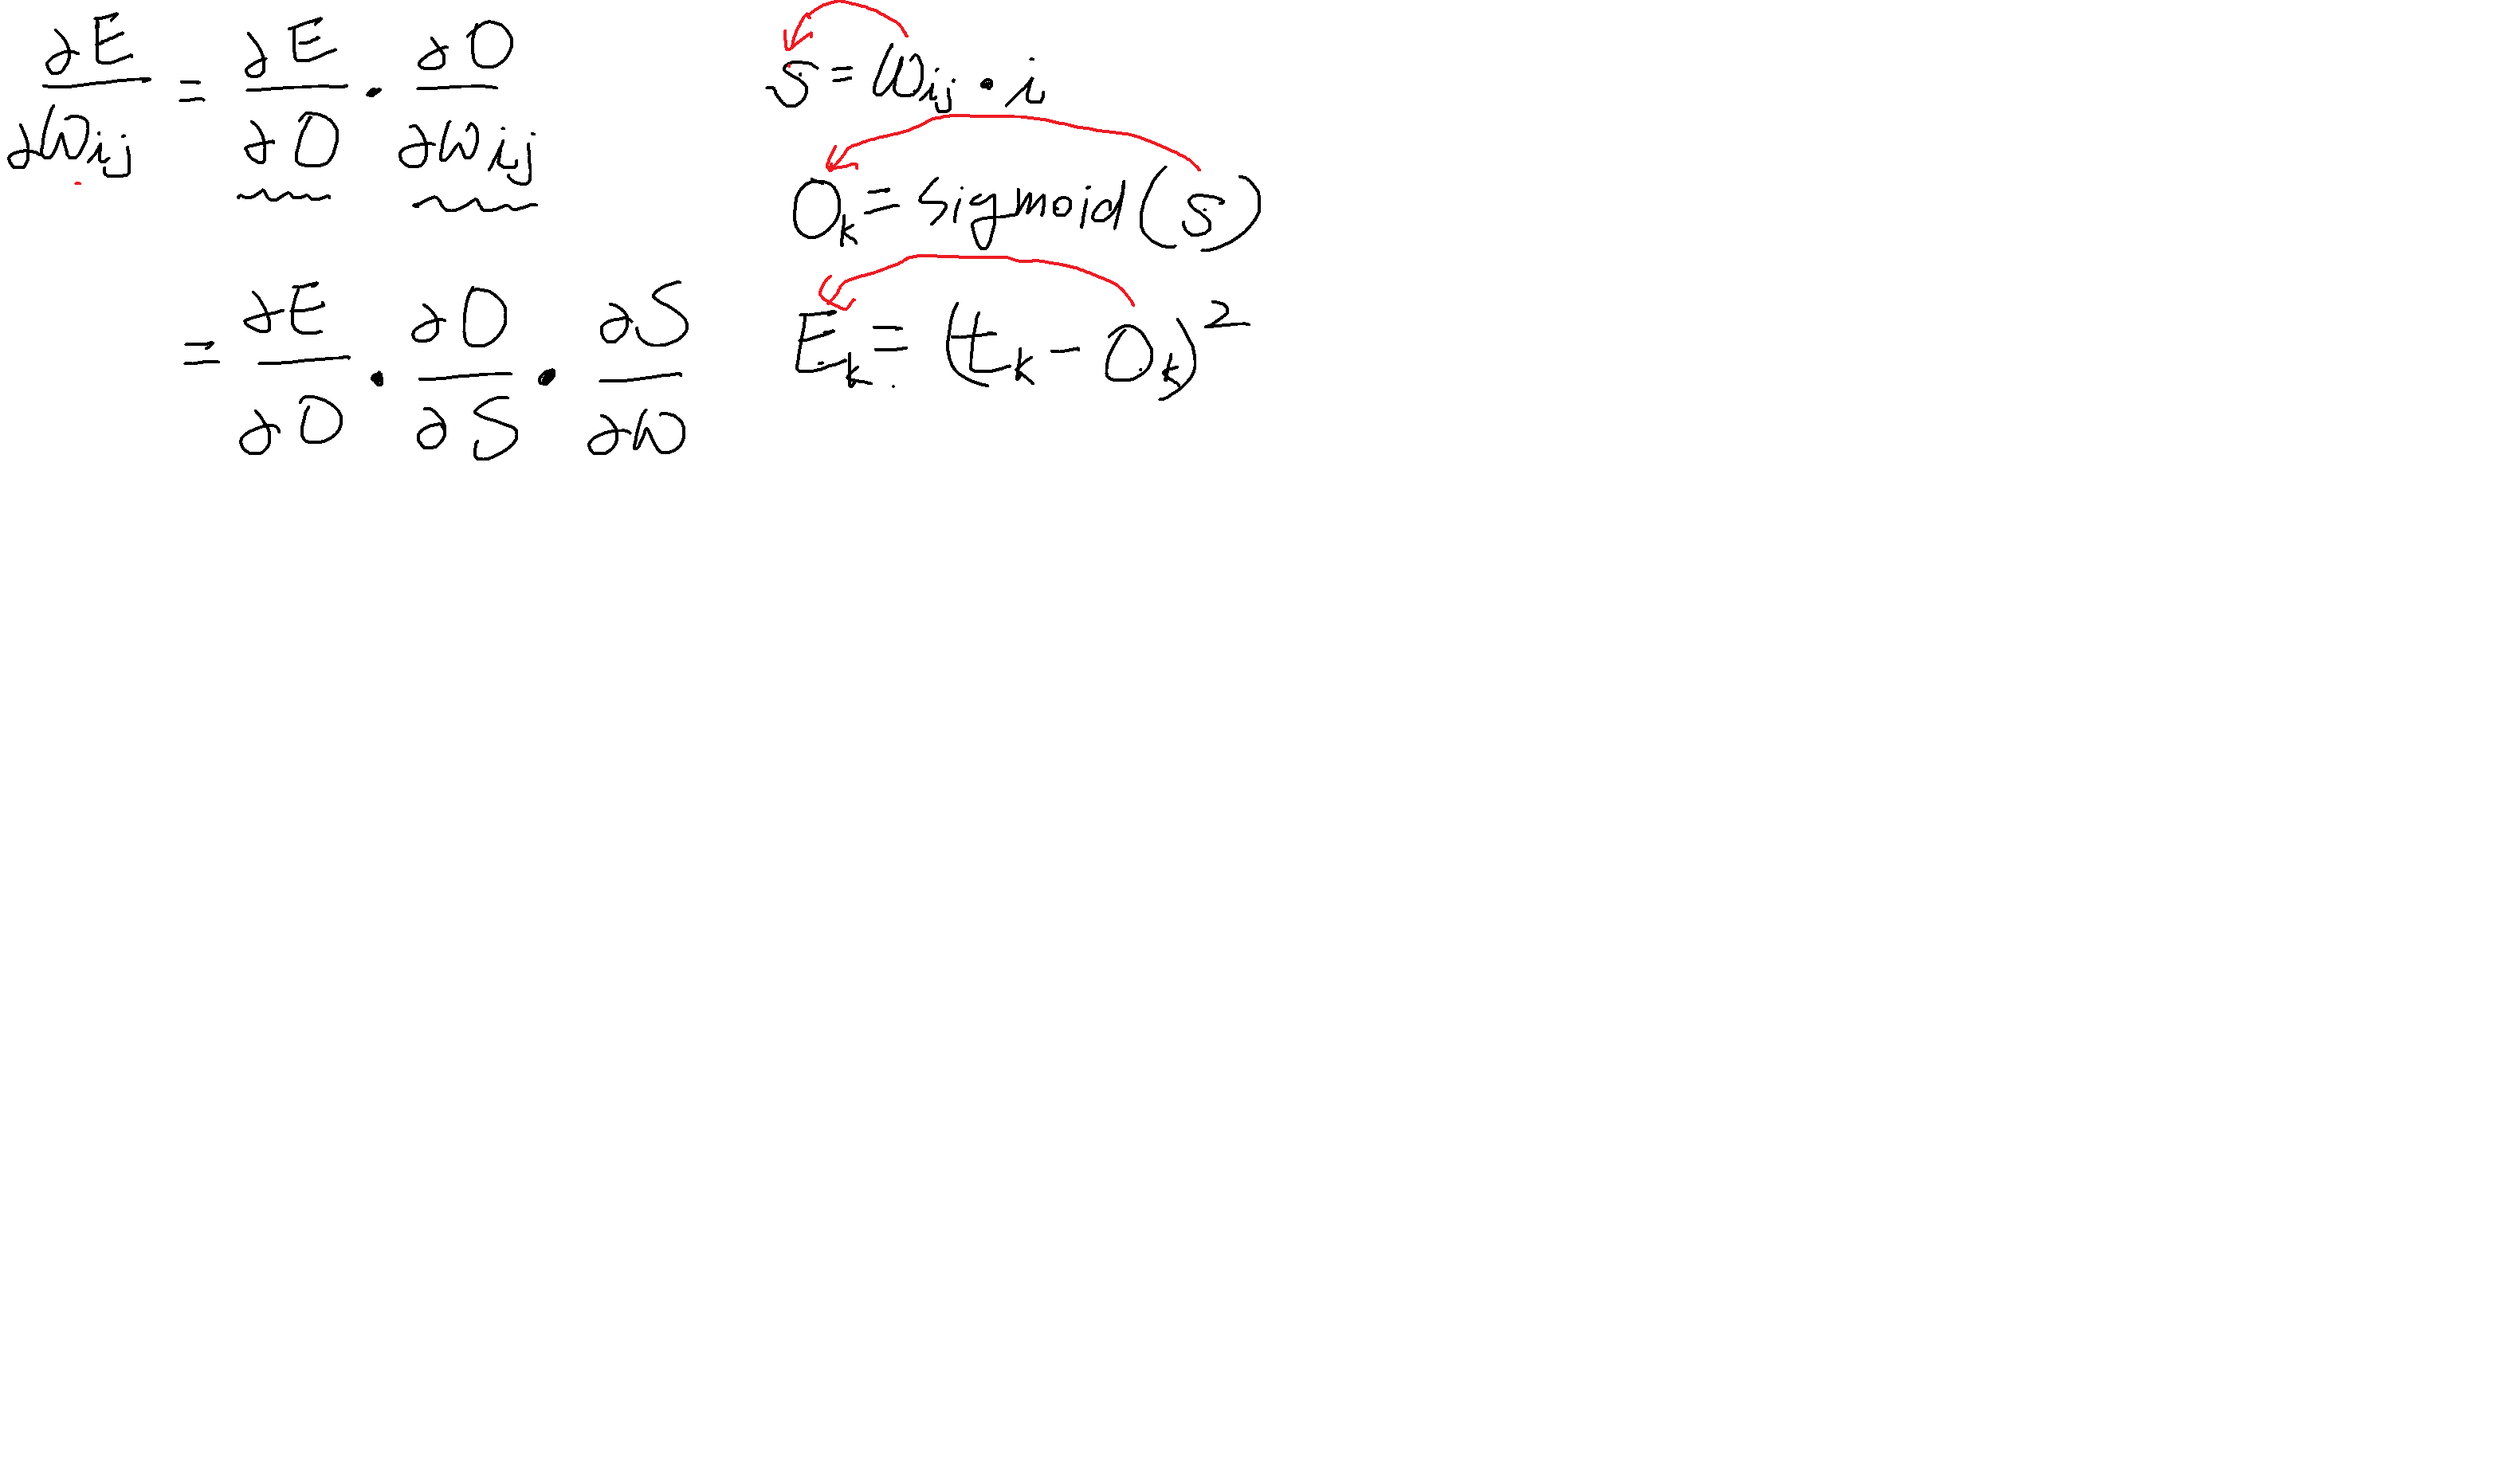 ∂E/∂Wij = ∂E/∂O · ∂O/∂Wij
= ∂E/∂O · ∂O/∂S · ∂S/∂W
S = Wij · i
Ok = sigmoid(S)
Ek = (tk - Ok)²